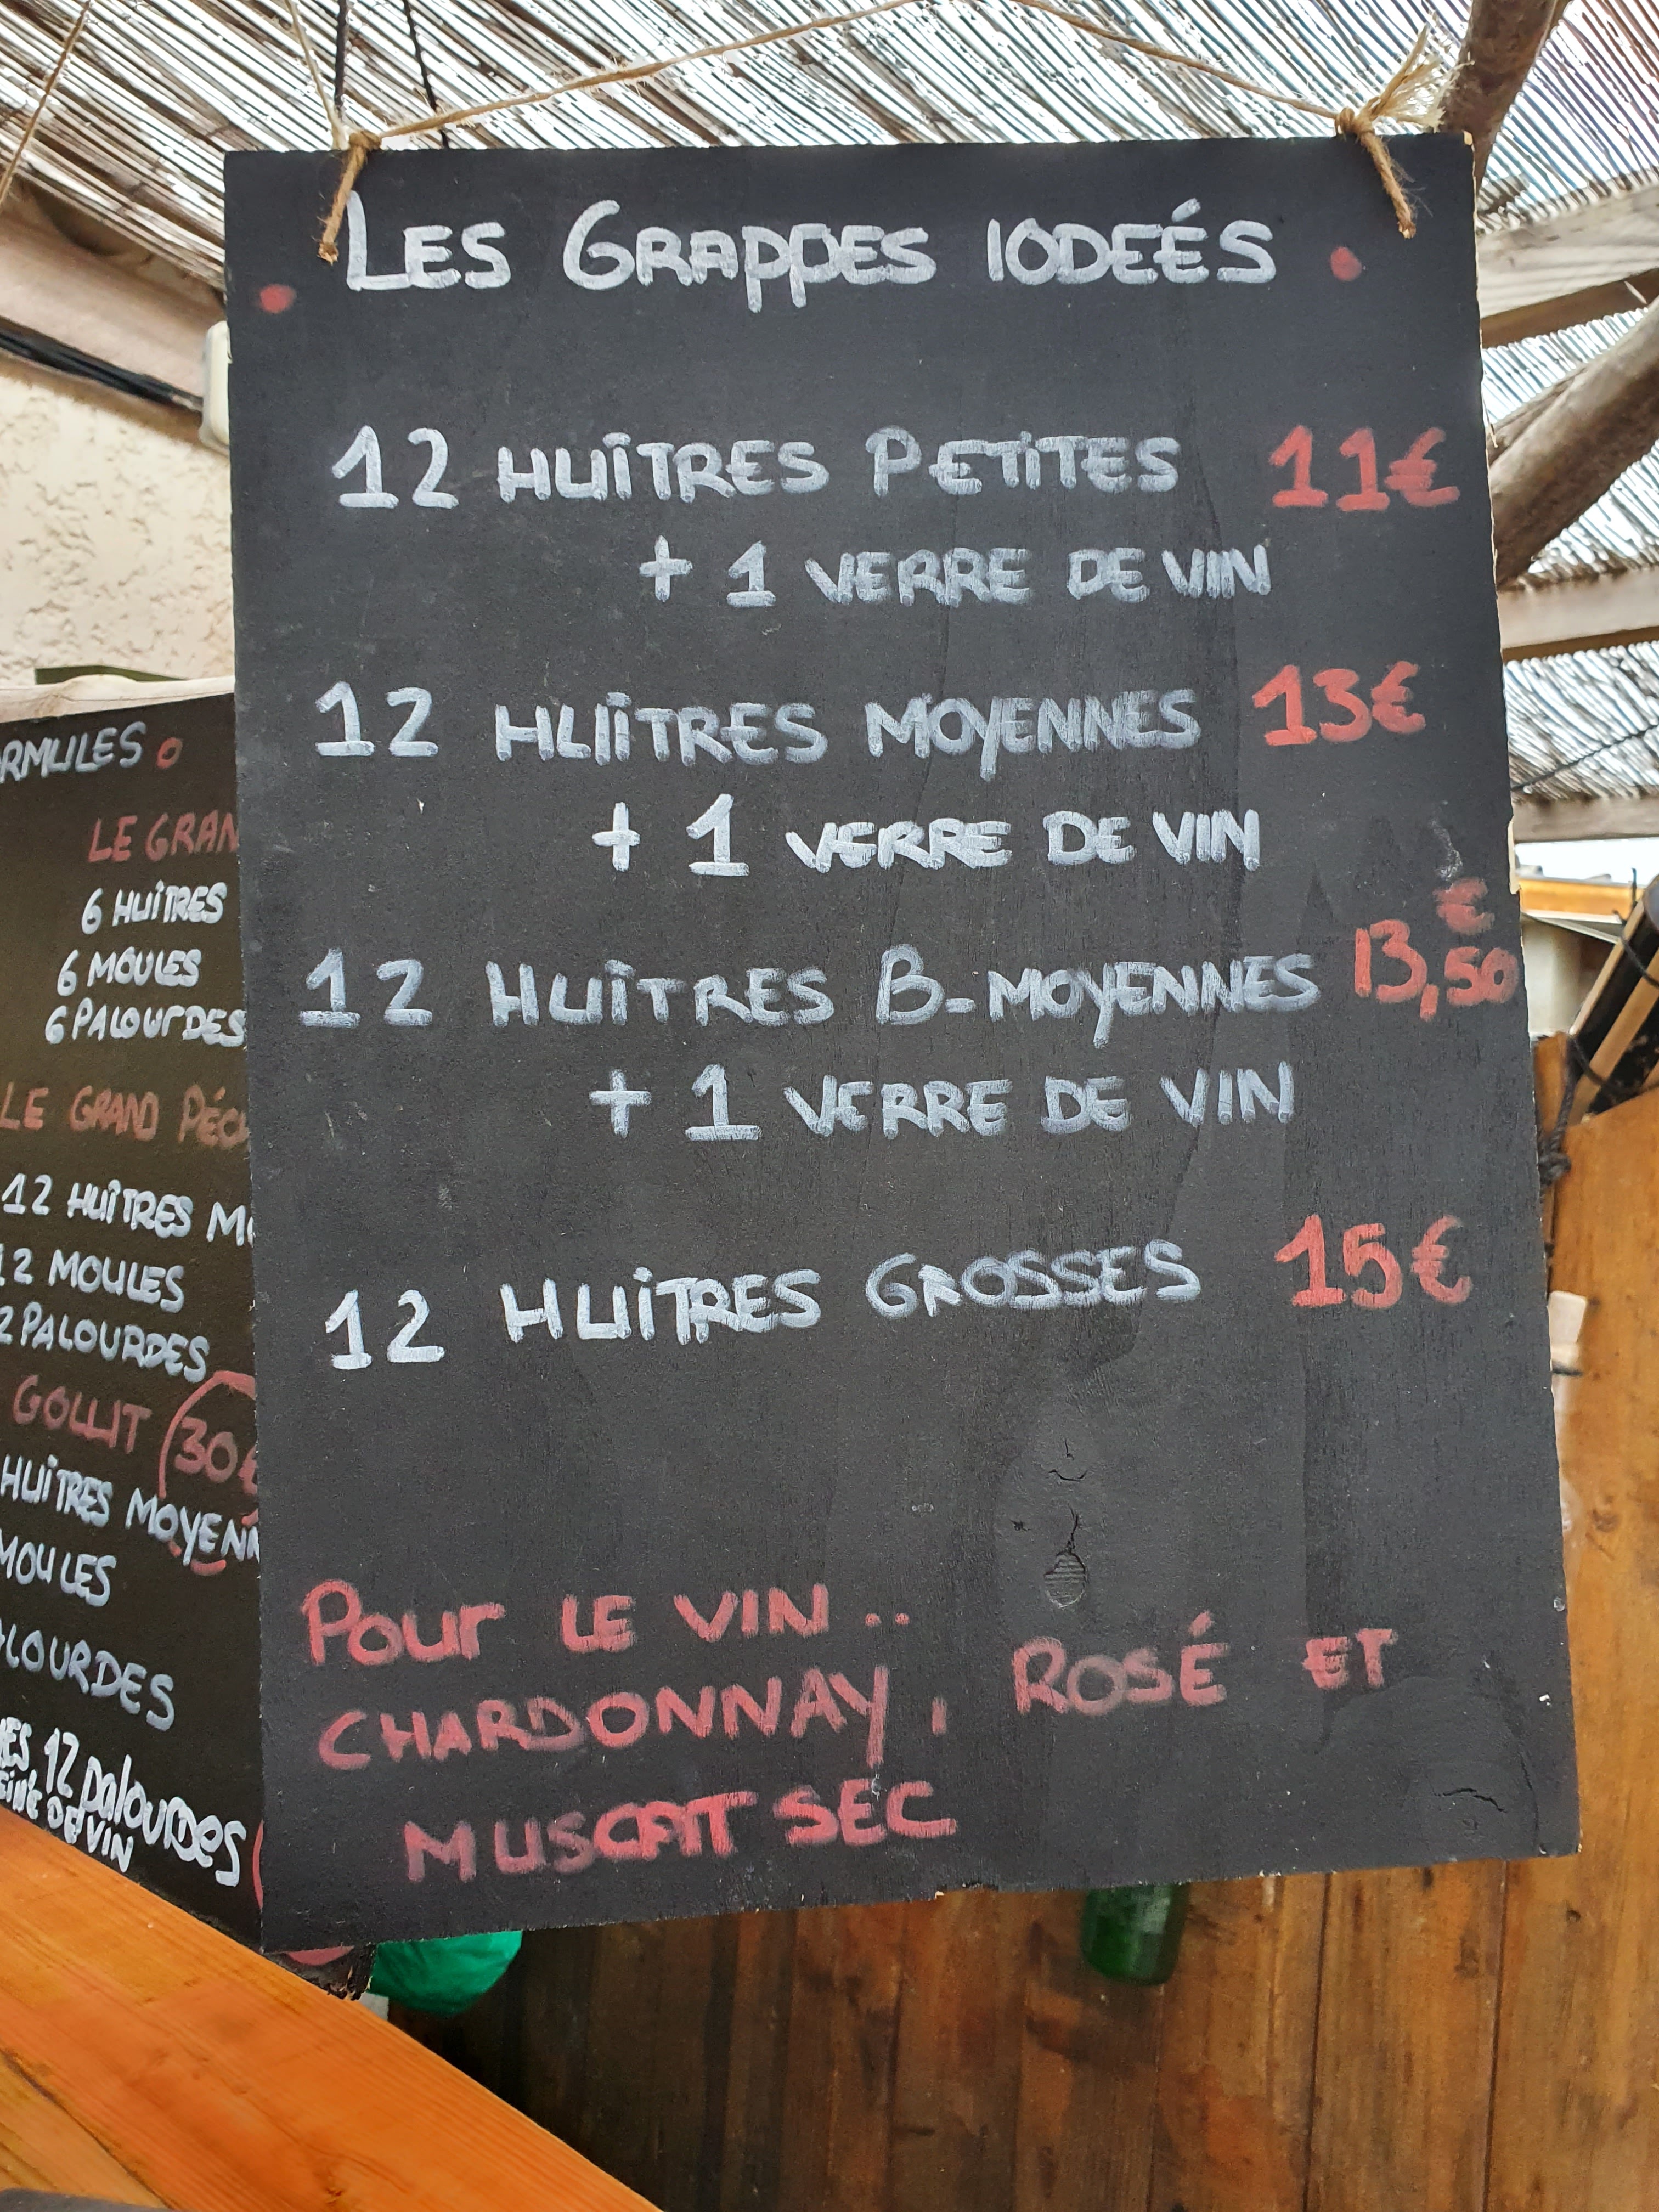 LES GRAPPES IODEÉS
12 HUÎTRES PETITES 11€
+ 1 VERRE DE VIN
12 HUÎTRES MOYENNES 13€
+ 1 VERRE DE VIN
12 HUÎTRES B-MOYENNES 13,50 €
+ 1 VERRE DE VIN
12 HUÎTRES GROSSES 15€
POUR LE VIN ..
CHARDONNAY, ROSÉ ET
MUSCAT SEC
RMULES
LE GRAN
6 HUÎTRES
6 MOULES
6 PALOURDES
LE GRAND PÉC
12 HUÎTRES M
12 MOULES
2 PALOURDES
GOLUT 30€
HUÎTRES MOYENN
MOULES
LOURDES
ES 12 palourdes
DE VIN